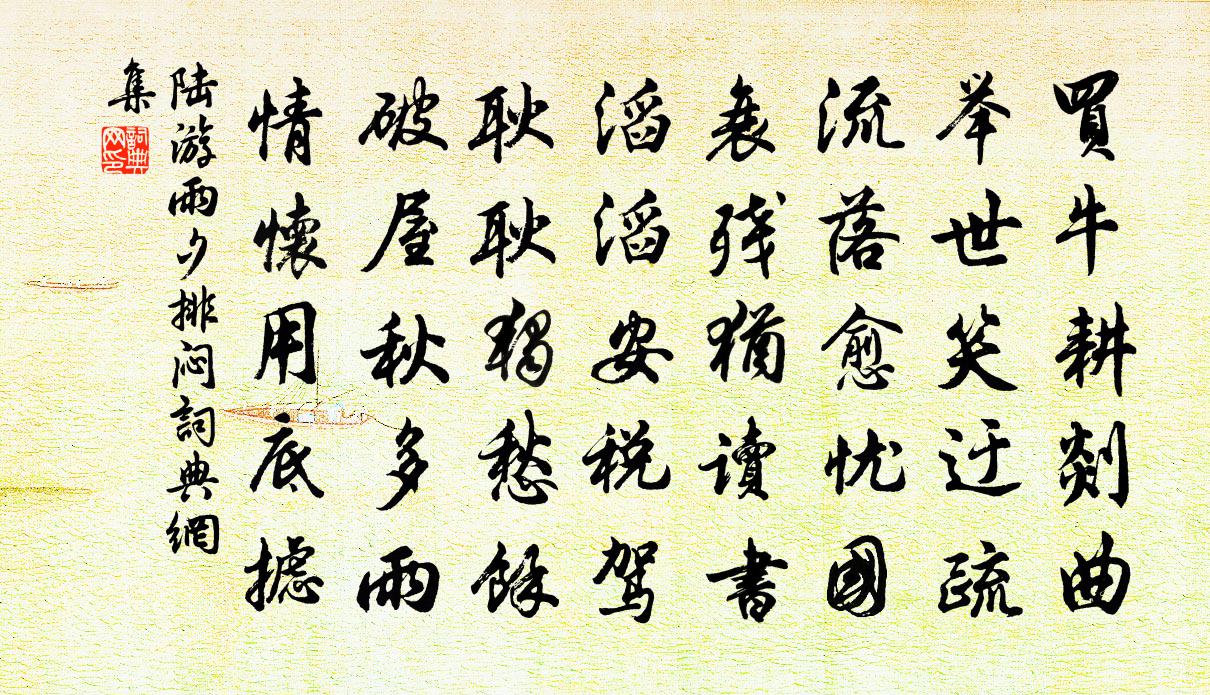 買牛耕剡曲
举世笑迂疏
流落愈忧國
衰残猶讀書
滔滔安税駕
耿耿獨愁餘
破屋秋多雨
情懷用底攄
陆游雨夕排闷詞典網
集
詞典网印